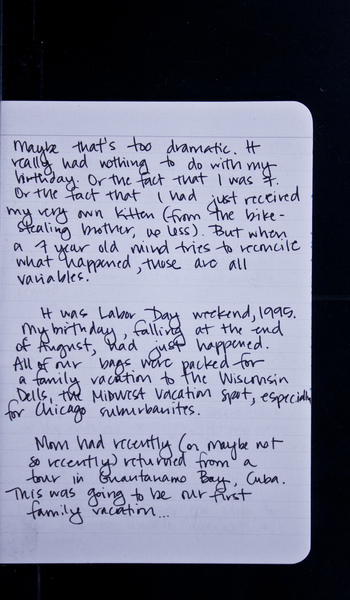 Maybe that's too dramatic. It
really had nothing to do with my
birthday. Or the fact that I was 7.
Or the fact that I had just received
my very own kitten (from the bike-
stealing brother, no less). But when
a 7 year old mind tries to reconcile
what happened, those are all
variables.
It was Labor Day weekend, 1995.
My birthday, falling at the end
of August, had just happened.
All of our bags were packed for
a family vacation to the Wisconsin
Dells, the Midwest vacation spot, especially
for Chicago suburbanites.
Mom had recently (or maybe not
so recently) returned from a
tour in Guantanamo Bay, Cuba.
This was going to be our first
family vacation...